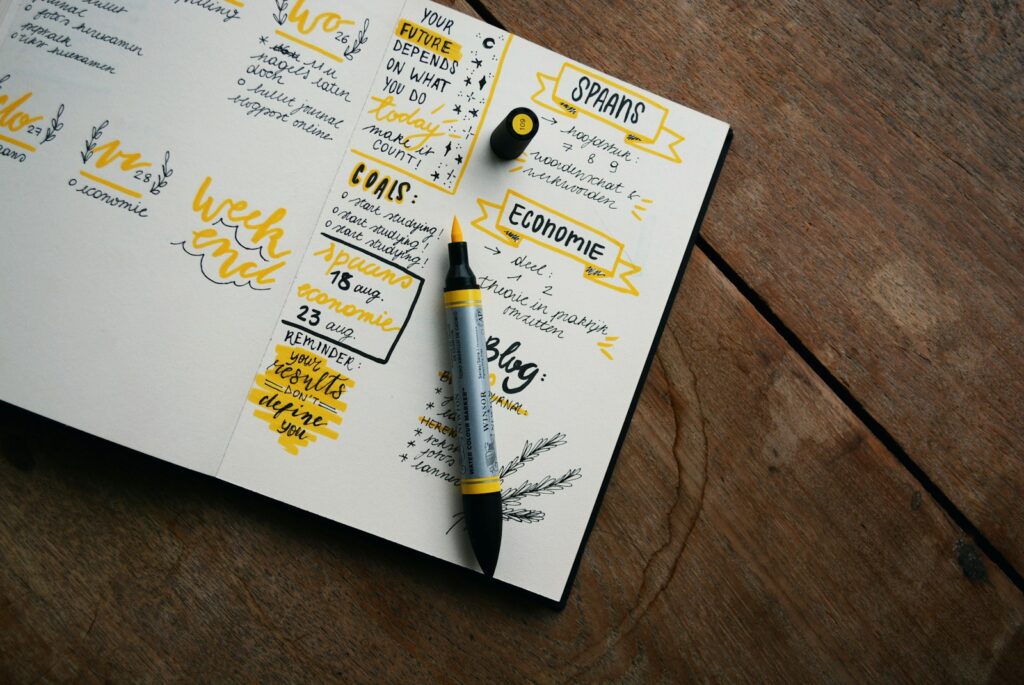 journal
foto's herexamen
o herexamen
27
vr 28
o economie
week
end
wo 26
nagels laten
doen
o bullet journal
blogpost online
YOUR
FUTURE
DEPENDS
ON WHAT
YOU DO
today!
make it
COUNT!
GOALS:
o start studying!
o start studying!
o start studying!
spaans
18 aug.
economie
23 aug.
REMINDER:
your
results
DON'T
define
you
SPAANS
→ hoofdstuk:
7 8 9
woordenschat &
werkwoorden
ECONOMIE
→ deel:
1 2
theorie in praktijk
omzetten
Blog:
JOURNAL:
109
WATER COLOUR MARKER
WINSOR